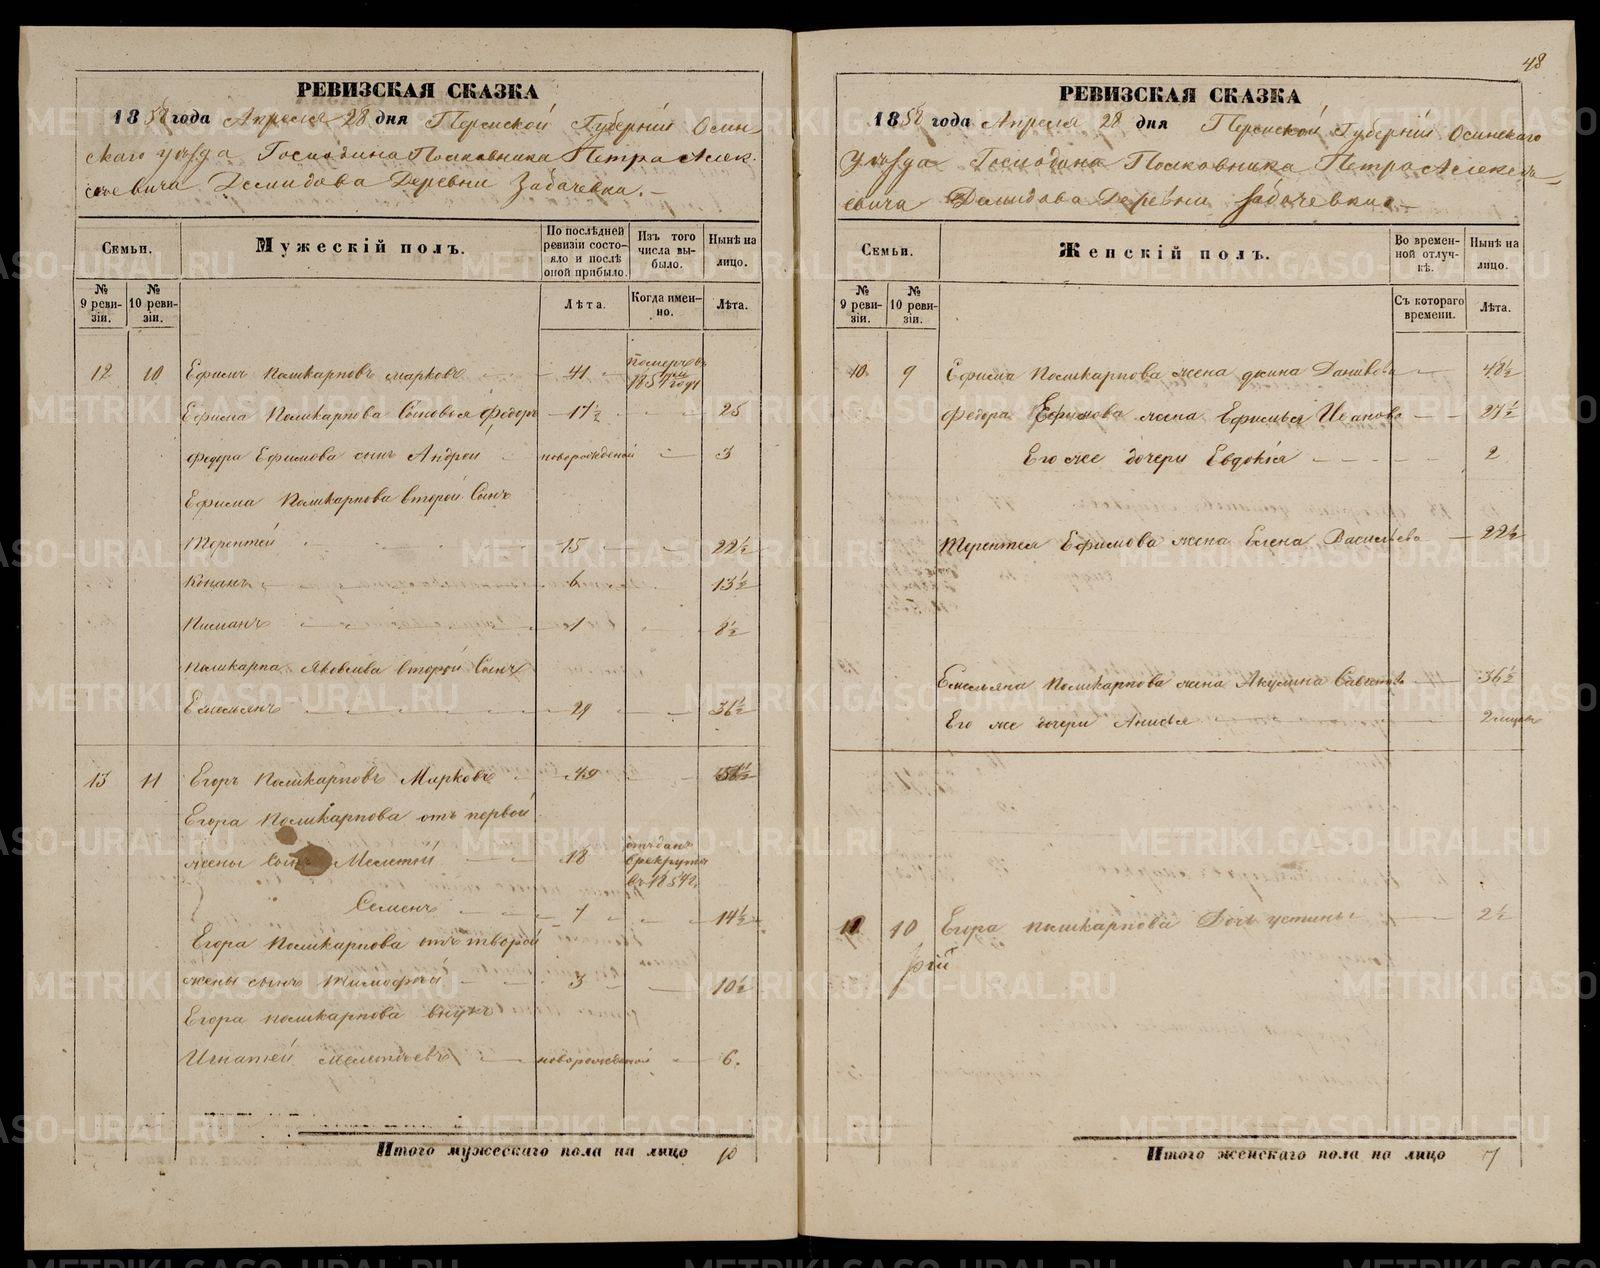 РЕВИЗСКАЯ СКАЗКА
1858 года Апреля 28 дня Пермской Губерніи Осин-
скаго уѣзда Господина Полковника Петра Алек-
сѣевича Демидова Деревни Забачевка.
Семьи.
Мужескій полъ.
По послѣдней ревизіи состо-
яло и послѣ
оной прибыло.
Изъ того
числа вы-
было.
Нынѣ на
лицо.
№
9 реви-
зіи.
№
10 реви-
зіи.
Лѣта.
Когда имен-
но.
Лѣта.
12 10 Ефимъ Поликарповъ Марковъ 41 померъ въ
1857 году
Ефима Поликарпова Сыновья Федоръ 17½ 25
Федора Ефимова сынъ Андрей новорожденой 3
Ефима Поликарпова второй Сынъ
Терентей 15 22½
Кононъ 6 13½
1 8½
Поликарпа Яковлева второй Сынъ
Емельянъ 29 36½
13 11 Егоръ Поликарповъ Марковъ 49
Егора Поликарпова отъ первой
жены Сынъ Мелетій 18 отъданъ
в рекруты
въ 1854 г.
Семенъ 7 14½
Егора Поликарпова отъ второй
жены сынъ Тимофей 3 10½
Егора поликарпова внукъ
Игнатей Мелетьевъ новорожденой 6.
Итого мужескаго пола на лицо 10
48
РЕВИЗСКАЯ СКАЗКА
1858 года Апреля 28 дня Пермской Губерніи Осинскаго
Уѣзда Господина Полковника Петра Алексѣ-
евича Демидова Деревни Забачевки
Семьи.
Женскій полъ.
Во времен-
ной отлуч-
кѣ.
Нынѣ на
лицо.
№
9 реви-
зіи.
№
10 реви-
зіи.
Съ котораго
времени.
Лѣта.
10 9 Ефима Поликарпова жена Данилова 48½
Федора Ефимова жена Ефимья Иванова 27½
Его же дочери Евдокія 2
Терентея Ефимова жена Елена Васильева 22½
Емельяна Поликарпова жена Акулина 36½
Его же дочери Анисья 2 месяц
10 Егора поликарпова Дочь устинья 2½
Итого женскаго пола на лицо 7
METRIKI.GASO-URAL.RU